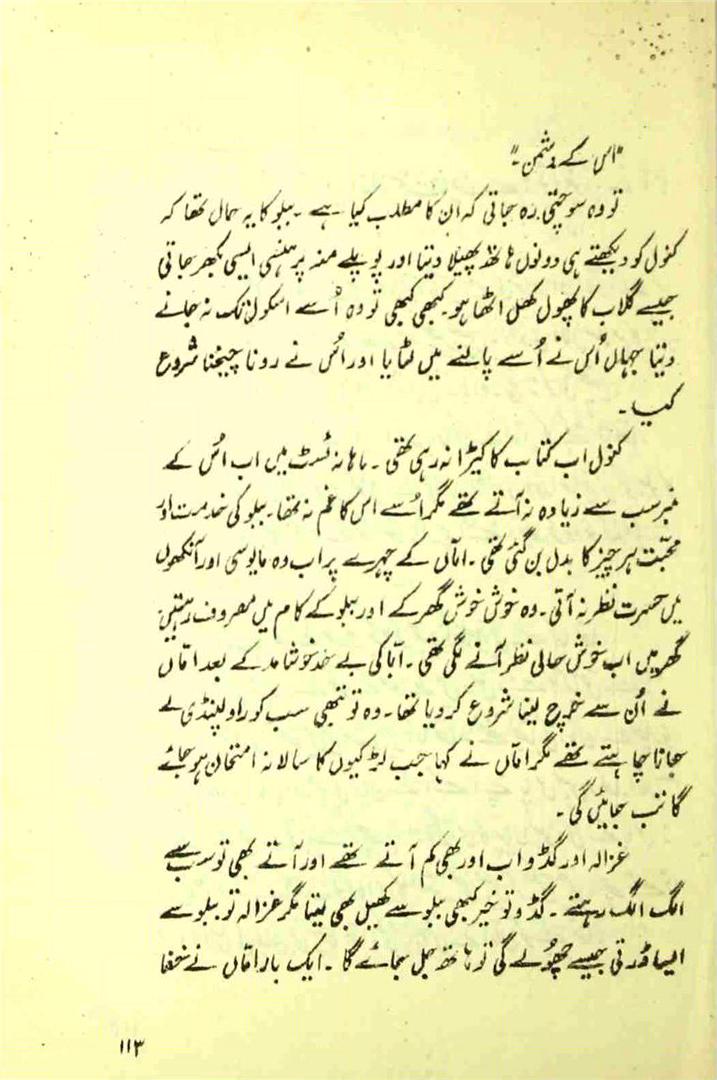 "اس کے دشمن۔"
تو وہ سوچتی رہ جاتی کہ ان کا مطلب کیا ہے۔ ببلو کا یہ حال تھا کہ
کنول کو دیکھتے ہی دونوں ہاتھ پھیلا دیتا اور پوپلے منہ پر ہنسی ایسی بکھر جاتی
جیسے گلاب کا پھول کھل اٹھا ہو۔ کبھی کبھی تو وہ اُسے اسکول تک نہ جانے
دیتا جہاں اُس نے اُسے پالنے میں لٹایا اور اُس نے رونا چیخنا شروع
کیا۔
کنول اب کتاب کا کیڑا نہ رہی تھی۔ ماہانہ ٹسٹ میں اب اُس کے
نمبر سب سے زیادہ نہ آتے تھے مگر اُسے اس کا غم نہ تھا۔ ببلو کی خدمت اور
محبّت ہر چیز کا بدل بن گئی تھی۔ امّاں کے چہرے پر اب وہ مایوسی اور آنکھوں
میں حسرت نظر نہ آتی۔ وہ خوش خوش گھر کے اور ببلو کے کام میں مصروف رہتیں
گھر میں اب خوش حالی نظر آنے لگی تھی۔ ابّا کی بے حد خوشامد کے بعد امّاں
نے اُن سے خرچ لینا شروع کر دیا تھا۔ وہ تو تبھی سب کو راولپنڈی لے
جانا چاہتے تھے مگر امّاں نے کہا جب لڑکیوں کا سالانہ امتحان ہو جائے
گا تب جائیں گی۔
غزالہ اور گڈو اب اور بھی کم آتے تھے اور آتے بھی تو سب سے
الگ الگ رہتے۔ گڈو تو خیر کبھی ببلو سے کھیل بھی لیتا مگر غزالہ تو ببلو سے
ایسا ڈرتی جیسے چھولے گی تو ہاتھ جل جائے گا۔ ایک بار امّاں نے خفا
۱۱۳